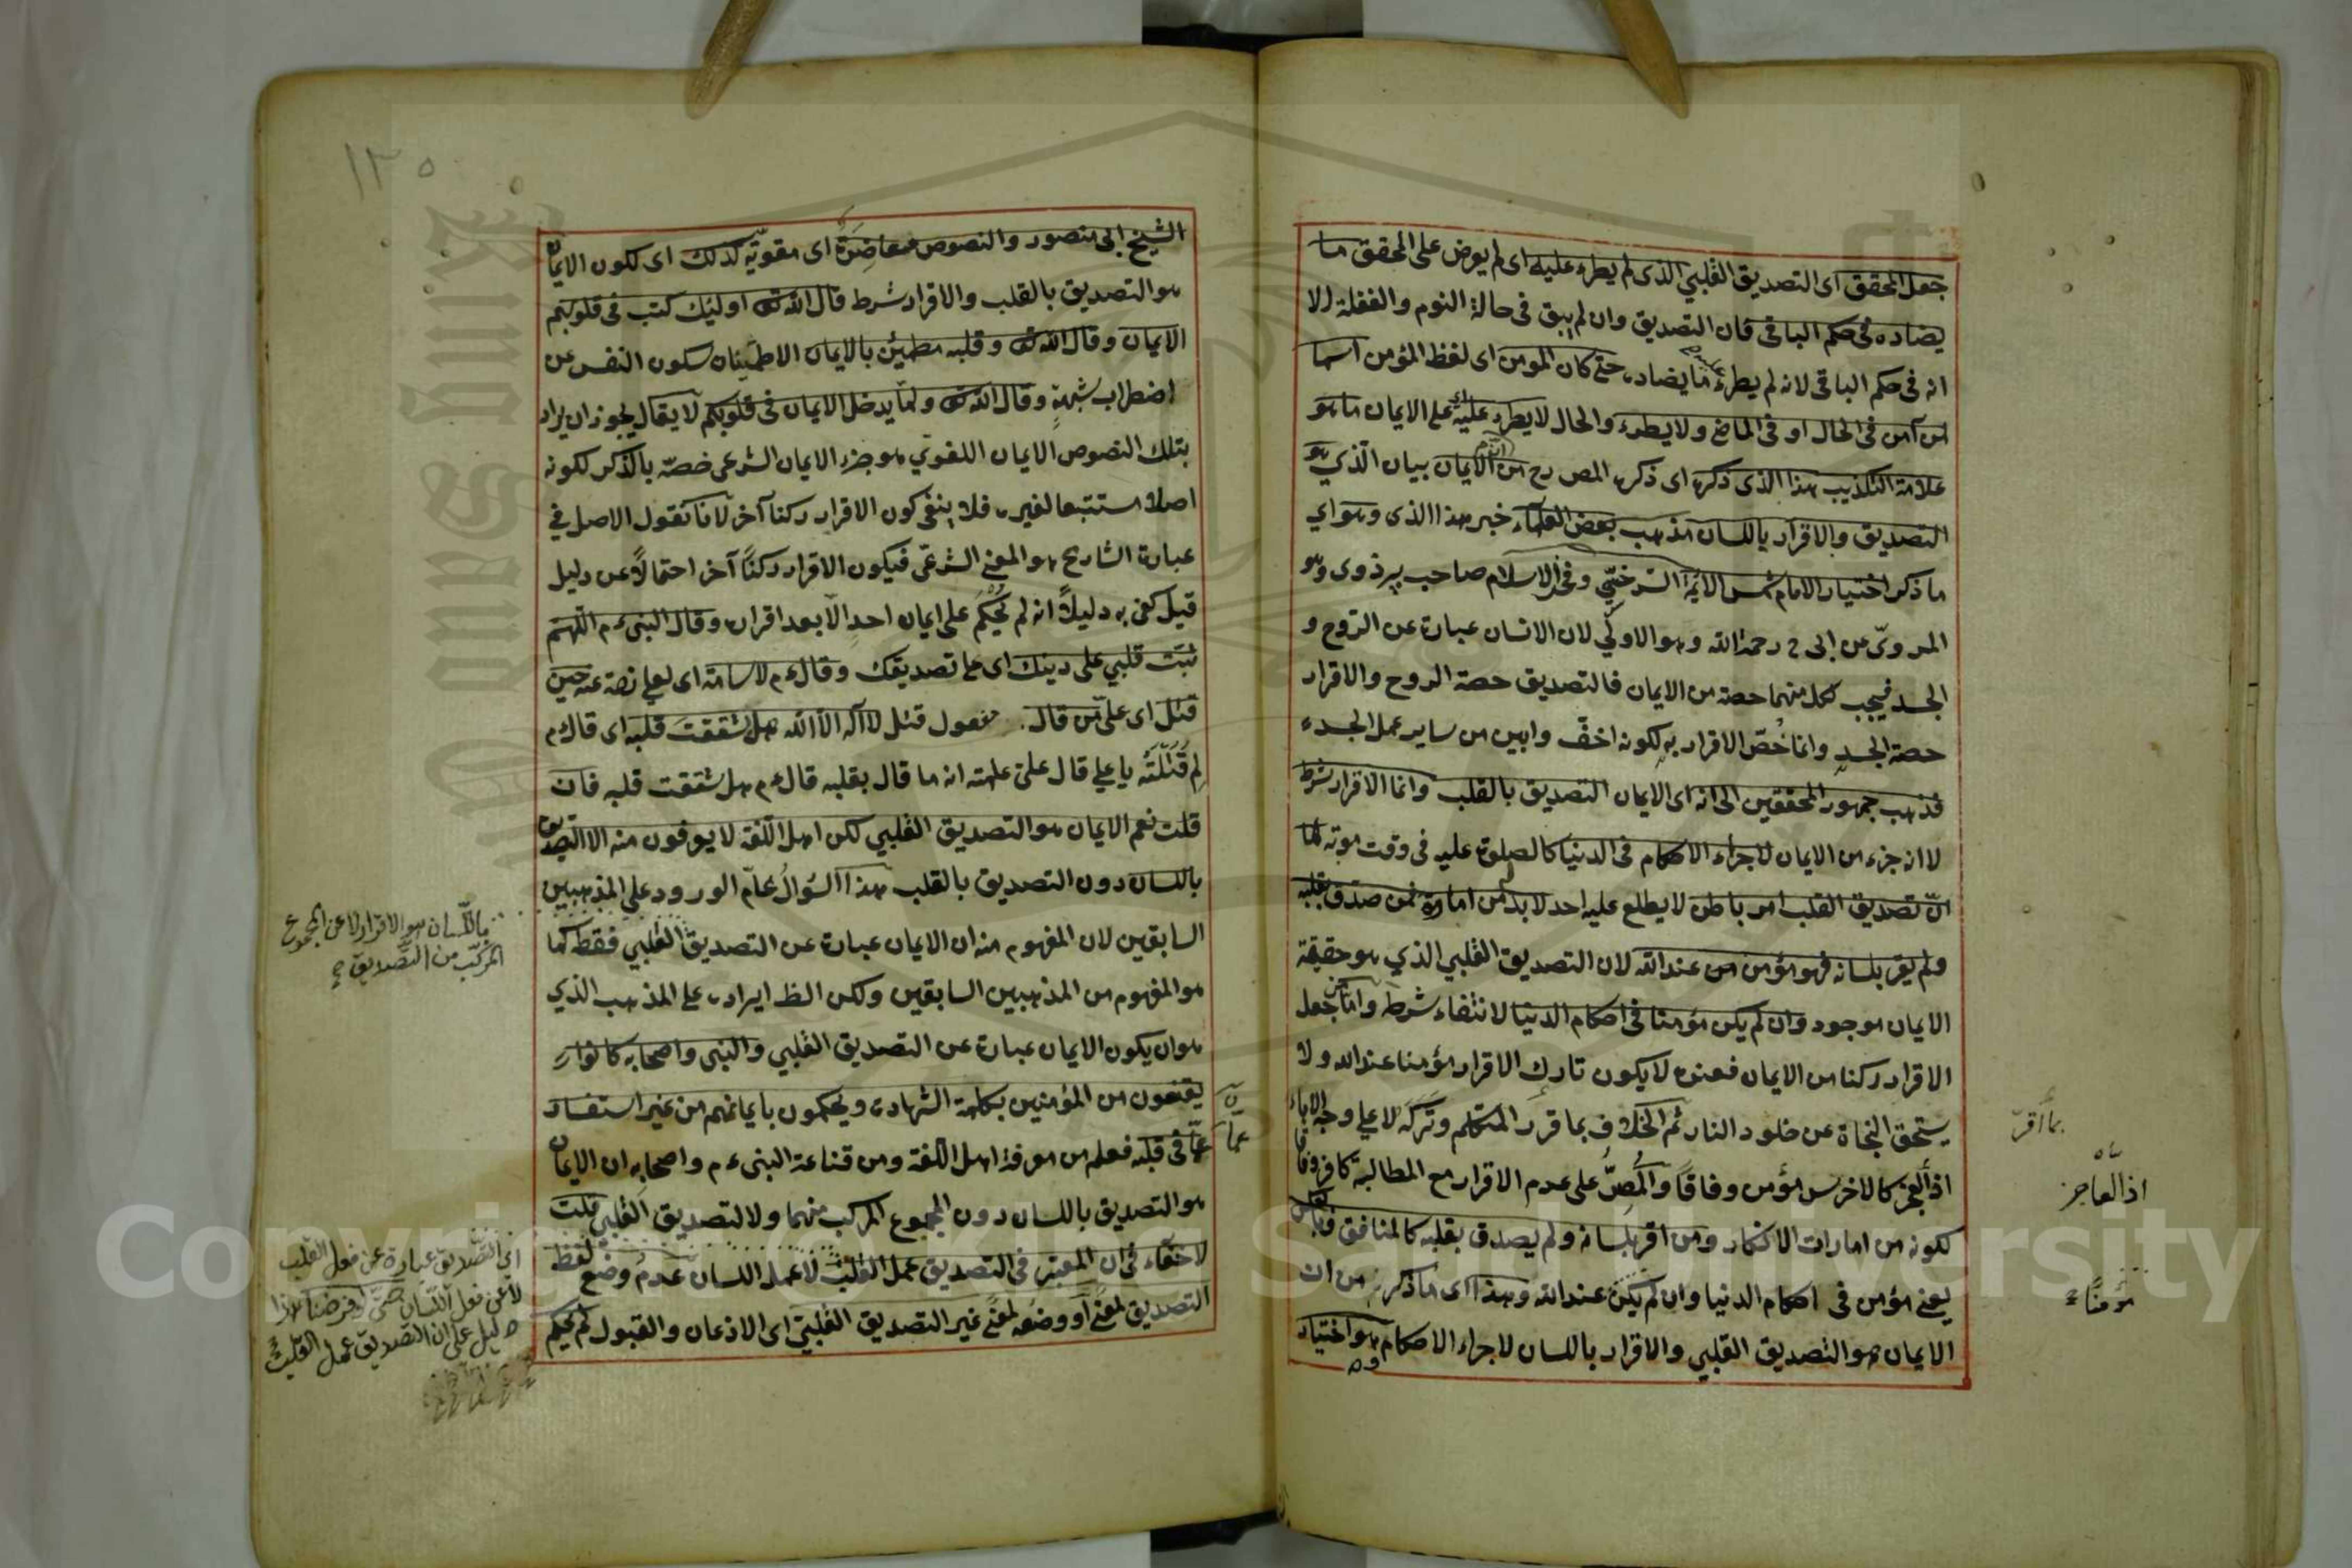 جعل المحقق اى التصديق القلبي الذى لم يطرء عليه اى لم يعرض على المحقق ما
يضاده فى حكم الباقى فان التصديق وان لم يبق فى حالة النوم والغفلة الا
انه فى حكم الباقى لانه لم يطرء عليه ما يضاده حتى كان المومن اى لفظ المؤمن اسما
لمن آمن فى الحال او فى الماضى ولا يطرء والحال لا يطرء عليه اى على الايمان ما هو
علامة التكذيب هذا الذى ذكره اى ذكره المص رح من ان الايمان بيان الذي هو
التصديق والاقرار باللسان مذهب بعض العلماء خبر هذا الذى وهو اي
ما ذكر اختيار الامام شمس الائمة السرخسي وفخر الاسلام صاحب پيزدوى وهو
المروىّ عن ابى ح رحمه الله وهو الاولى لان الانسان عبارة عن الروح و
الجسد فيجب لكل منهما حصة من الايمان فالتصديق حصة الروح والاقرار
حصة الجسد وانما خُصّ الاقرار به لكونه اخفّ وابين من ساير عمل الجسد
فذهب جمهور المحققين الى انه اى الايمان التصديق بالقلب وانما الاقرار شرط
لا انه جزء من الايمان لاجراء الاحكام فى الدنيا كالصلوة عليه فى وقت موته لما
انّ تصديق القلب امر باطن لا يطلع عليه احد لا بد من امارة فمن صدق بقلبه
ولم يقر بلسانه فهو مؤمن عند الله لان التصديق القلبي الذي هو حقيقة
الايمان موجود وان لم يكن مؤمنا فى احكام الدنيا لانتفاء شرطه واما من جعل
الاقرار ركنا من الايمان فعنده لا يكون تارك الاقرار مؤمنا عند الله ولا
يستحق النجاة عن خلود النار ثم الخلاف بما قرر المتكلم وتركه لا على وجه الاباء
اذ العجز كالاخرس مؤمن وفاقاً والمُصرُّ على عدم الاقرار مع المطالبة كافر وفاقا
لكونه من امارات الانكار ومن اقر بلسانه ولم يصدق بقلبه كالمنافق فبالعكس
يعنى مؤمن فى احكام الدنيا وان لم يكن عند الله وهذا اى ما ذكر من ان
الايمان هو التصديق القلبي والاقرار باللسان لاجراء الاحكام هو اختيار
بما أقرّ
اذ العاجز
مؤمنًا
١٣٥
الشيخ ابى منصور والنصوص معاضِدة اى مقويّة لذلك اى لكون الايمان
هو التصديق بالقلب والاقرار شرط قال الله تعالى اولئك كتب فى قلوبهم
الايمان وقال الله تعالى وقلبه مطمئن بالايمان الاطمينان سكون النفس عن
اضطراب شبهةٍ وقال الله تعالى ولما يدخل الايمان فى قلوبكم لا يقال يجوز ان يراد
بتلك النصوص الايمان اللغوي هو جزء الايمان الشرعى خصّه بالذكر لكونه
اصلا مستتبعا لغيره فلا ينفى كون الاقرار ركنا آخر لانا نقول الاصل في
عبارة الشارح هو المعنى الشرعّى فيكون الاقرار ركنًا آخر احتمالاً عن دليل
قيل كفى به دليلاً انه لم يُحكم على ايمان احد الا بعد اقراره وقال النبىء م اللهم
ثبّت قلبي على دينك اى على تصديقك وقالء م لاسامة اى لعلى رضه عنه حين
قتل اى على من قال مفعول قتل لا اله الا الله هل شققت قلبه اى قالء م
لِم قتلتَه يا على قال على علمته انه ما قال بقلبه قالء م هل شققت قلبه فان
قلت نعم الايمان هو التصديق القلبي لكن اهل اللغة لا يعرفون منه الا التصديق
باللسان دون التصديق بالقلب هذا السّؤالُ عامّ الورود على المذهبين
السابقين لان المفهوم منه ان الايمان عبارة عن التصديق القلبي فقط كما
هو المفهوم من المذهبين السابقين ولكن الظ ايراده على المذهب الذي
هو ان يكون الايمان عبارة عن التصديق القلبي والنبى واصحابه كانوا
يقنعون من المؤمنين بكلمة الشهادة ويحكمون بايمانهم من غير استفسار
عمّا فى قلبه فعلم من معرفة اهل اللغة ومن قناعة النبىء م واصحابه ان الايمان
هو التصديق باللسان دون المجموع المركب منهما ولا التصديق القلبي قلت
لا خفاء فى ان المعتبر فى التصديق عمل القلب لا عمل اللسان عدمُ وضع لفظ
التصديق لمعنًى او وضعه لمعنًى غير التصديق القلبيّ اى الاذعان والقبول لم يحكم
باللسان هو الاقرار لا عن المجموع
المركّب من التّصديق
اى التّصديق عبارة عن فعل القلب
لا عن فعل اللّسان حتّى لو فرضنا هذا
دليل على ان التصديق عمل القلب